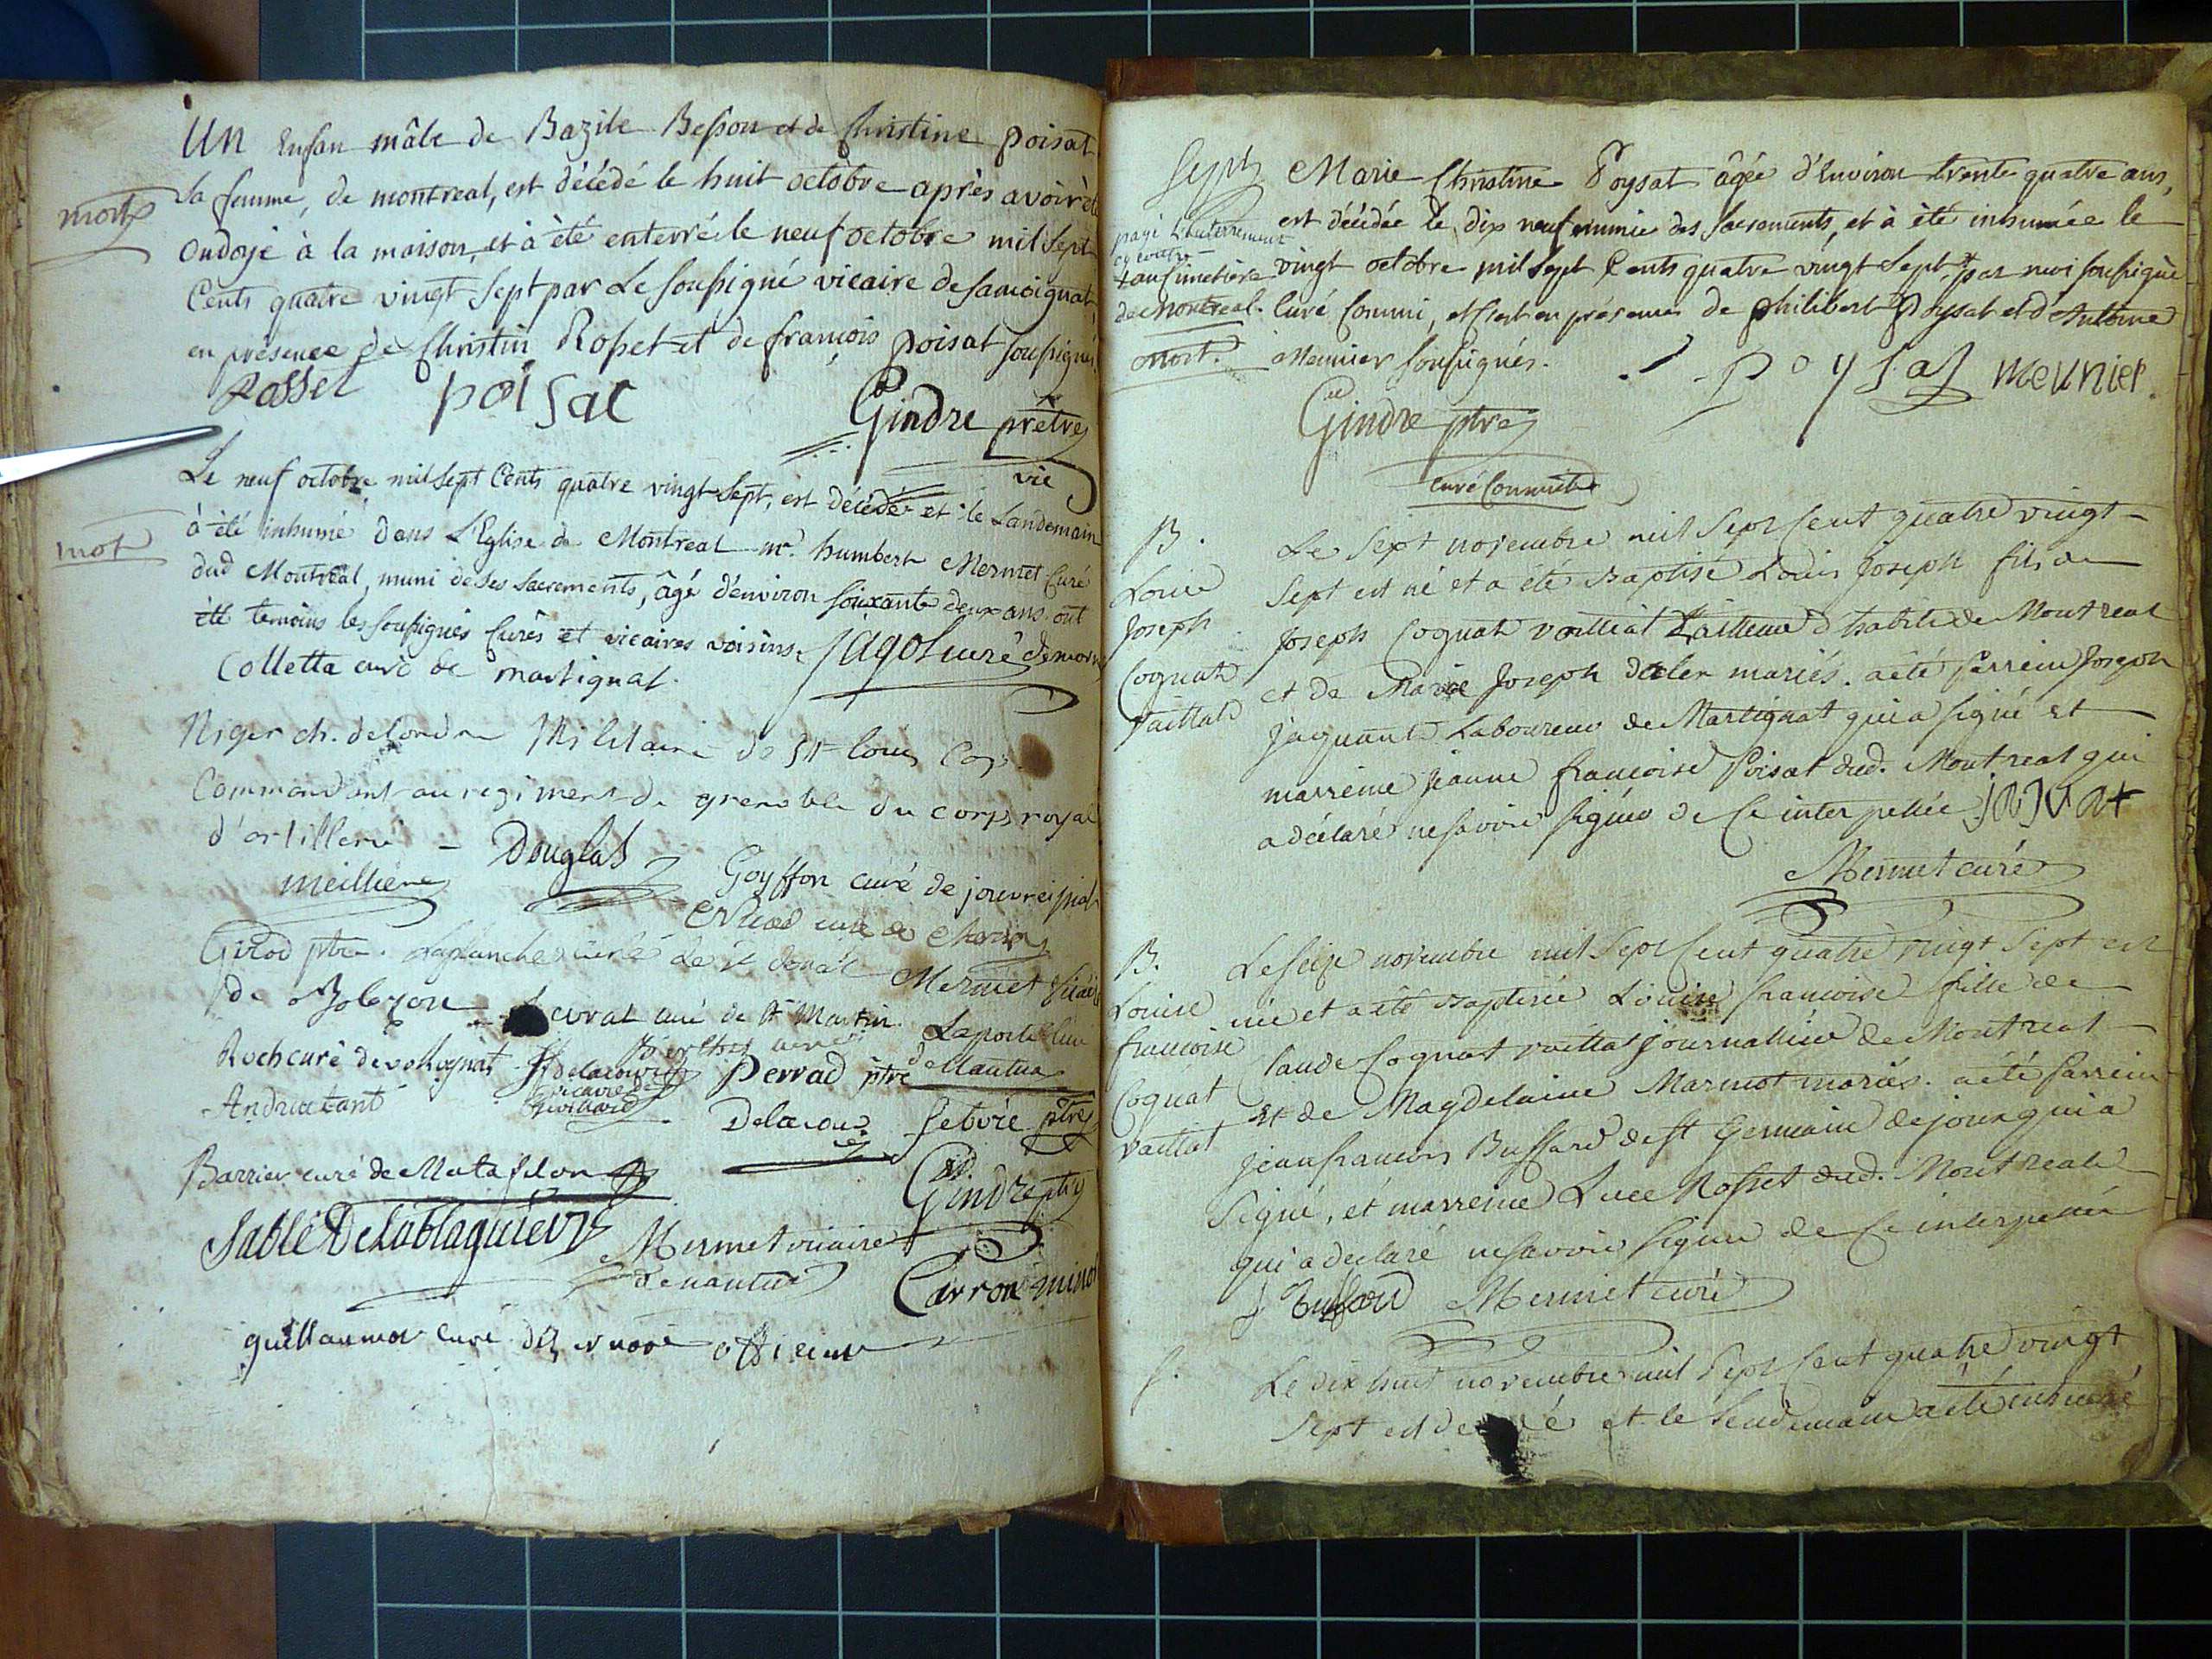 Un Enfan mâle de Bazile Besson et de Christine poisat
mort
sa femme, de montreal, est décédé le huit octobre après avoir été
Ondoyé à la maison, et à été enterré le neuf octobre mil Sept
Cents quatre vingt Sept par Le soussigné vicaire de Samoignat,
en présence de Christin Rosset et de françois poisat soussignés
Rosset poisac Gindre prêtre
vic
Le neuf octobre mil Sept Cents quatre vingt Sept, est décédé et le Landemain
mot
à été inhumé dans L'Eglise de Montreal mr. humbert Mermet Curé
dud Montréal, muni de ses Sacrements, âgé d'environ soixante deux ans. ont
été temoins les soussignés Curés et vicaires voisins. jagot curé de
Colletta curé de martignat.
Niger ch. de Lordre Militaire de St louis Cap.
Commandant au regiment de grenoble du corps royal
d'artillerie - Douglas
meilliere Goyffon curé de
curé de
Girod ptre. Laplanche curé de St
de Mermet
curat curé de St Martin Laporte
Roch curé de volognat Perrad ptre de Nantua
vicaire
Delacour Febvre ptre
Barrier curé de Matafelon
Gindre ptre
Sablé Delablaquiere Mermet vicaire
de nantua Carron
guillaumot curé
Sept. Marie Christine Poysat âgée d'Environ trente quatre ans,
payé L'enterrement
est décédée le dix neuf munie des Sacrements, et à été inhumée le
+ au Cimetière
vingt octobre mil Sept Cents quatre vingt Sept + par moi soussigné
de Montreal.
Curé Commi, et c'est en présence de philibert Poysat et d'Antoine
mort. Meunier soussignés.
poysat meunier.
Gindre ptre
curé Commis
B. Le Sept novembre mil Sept Cent quatre vingt
Louis Sept est né et a été Baptisé Louis Joseph fils de
Joseph Joseph Cognat vaillat Tailleur d'habits de Montreal
Cognat et de Marie Joseph mariés. a été parrein Joseph
vaillat
jaquant Laboureur de Martignat qui a signé et
marreine jeanne francoise Poisat dud. Montreal qui
a déclaré ne savoir signer de Ce interpellée
Mermet curé
B. Le seize novembre mil Sept Cent quatre vingt Sept est
Louise née et a été Baptisée Louise francoise fille de
francoise Claude Cognat vaillat journallier de Montreal
Cognat et de Magdelaine Marmot mariés. a été parrein
vaillat jean francois Buffard de St Germain de joux qui a
Signé, et marreine Luce Rosset dud. Montreal
qui a declaré ne savoir signer de Ce interpellée
j Buffard Mermet curé
Le dix huit novembre mil Sept Cent quatre vingt
Sept est et le Lendemain a été inhumé